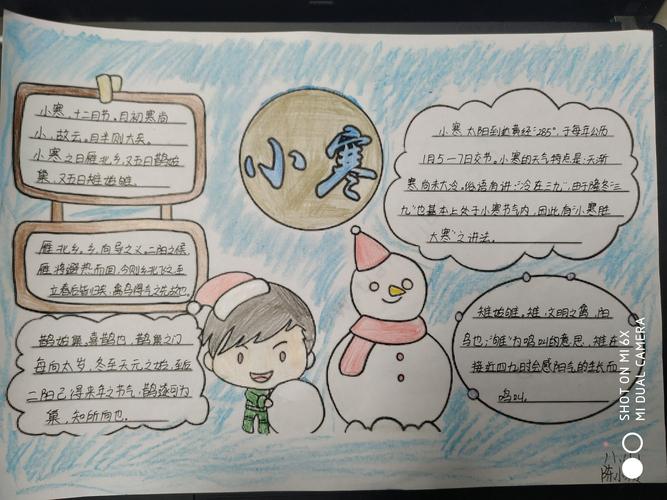 小寒
小寒,十二月节。月初寒尚
小,故云。月半则大矣。
小寒之日雁北乡,又五日鹊始
巢,又五日雉始雊。
雁北乡,乡向导之义。二阳之候,
雁将避热而回,今则乡北飞之,至
立春后皆归矣,禽鸟得气之先故也。
鹊始巢,喜鹊也,鹊巢之门
每向太岁,冬至天元之始,至后
二阳已得来年之节气,鹊遂可为
巢,知所向也。
小寒,太阳到达黄经285°,于每年公历
1月5-7日交节。小寒的天气特点是:天渐
寒,尚未大冷。俗语有讲:“冷在三九”,由于隆冬“三
九”也基本上处于小寒节气内,因此有“小寒胜
大寒”之讲法。
雉始雊,雉,文明之禽,阳
鸟也;“雊”为鸣叫的意思,雉在
接近四九时会感阳气的生长而
鸣叫。
SHOT ON MI 6X
MI DUAL CAMERA